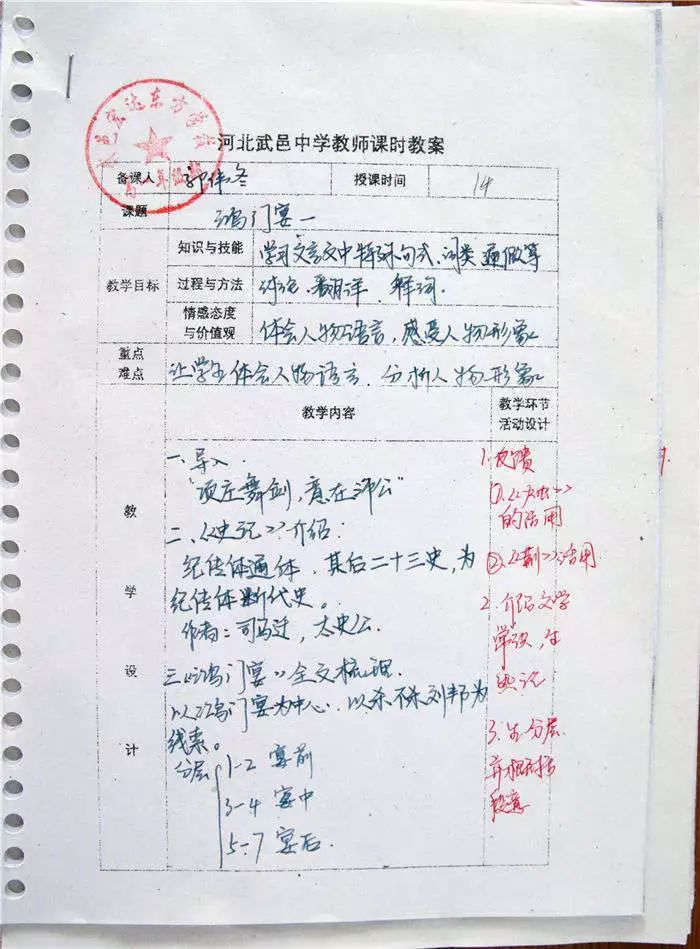 河北武邑中学教师课时教案
备课人 郭伟冬 授课时间 14
课题 鸿门宴一
教学目标
知识与技能 学习文言文中特殊句式、词类、通假等
过程与方法 讨论、翻译、释词.
情感态度
与价值观 体会人物语言,感受人物形象
重点
难点 让学生体会人物语言.分析人物形象
教学设计
教学内容
教学环节
活动设计
一、导入.
“项庄舞剑,意在沛公”
二、《史记》介绍:
纪传体通体.其后二十三史,为
纪传体断代史。
作者:司马迁,太史公.
三《鸿门宴》全文梳理.
以鸿门宴为中心.以杀不杀刘邦为
线索。
分层
1-2 宴前
3-4 宴中
5-7 宴后.
1.反馈
①.
的活用
②.《荆》活用
2.介绍文学
常识,生
识记
3.生分层
并概括
段意
1.